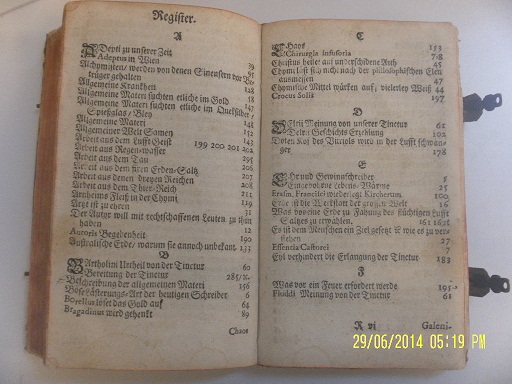 Register.
A
Adepti zu unserer Zeit 39
Adeptus in Wien 95
Alchymisten/ werden von denen Sinensern vor Be-
trüger gehalten 44
Allgemeine Kranckheit 128
Allgemeine Materi suchten etliche im Gold 18
Allgemeine Materi suchten etliche im Quecksilber/
Spießglas/ Bley 147
Allgemeine Materi 141
Allgemeiner Welt Samen 152
Arbeit aus dem Lufft Geist 143
Arbeit aus Regen-wasser 199 200 201 202
Arbeit aus dem Tau 295
Arbeit aus dem Erden-Saltz 206
Arbeit aus denen dreyen Reichen 207
Arbeit aus dem Thier-Reich 208
Arnheims Fleiß in der Chymi 231
Artzt ist zu ehren 119
Der Autor will mit rechtschaffenen Leuten zu thun 31
haben 12
Autoris Begebenheit 190
Australische Erde/ warum sie annoch unbekant 133
B
Bartholini Urtheil von der Tinctur 60
Bereitung der Tinctur 285/
Beschreibung der allgemeinen Materi 156
Böse Lästerungs-Art der heutigen Schreiber 6
Borellus löset das Gold auf 64
Bragadinus wird gehenkt 89
Chaos
C
Chaos 153
Chirurgia Infusoria 7.8
Christus heilet auf unterschiedene Arth 45
Chymi läst sich nicht nach der philosophischen Elen
ausmessen 47
Chymische Mittel würken auf vielerley Weiß 44
Crocus Solis 197
D
Meinung von unserer Tinctur 61
Geschichts Erzehlung 102
Doten Kopf des Vitriols wird in der Lufft schwan-
ger 178
E
Ehr und Gewinschreiber 1
Eingebohrne Lebens-Wärme 25
Erasm. Francisci wiederlegt Kircherum 100
Erde ist die Werkstatt der grossen Welt 16
Was vor eine Erd zu Fahung des flüchtigen Lufft
Saltzes zu erwählen. 161 162
Es ist dem Menschen ein Ziel gesetzt wie es zu ver-
stehen 27
Essentia Castorei 7
Eyl verhindert die Erlangung der Tinctur 183
F
Was vor ein Feuer erfordert werde 195
Fluddi Meinung von der Tinctur 61
R vi
Galeni-
29/06/2014 05:19 PM